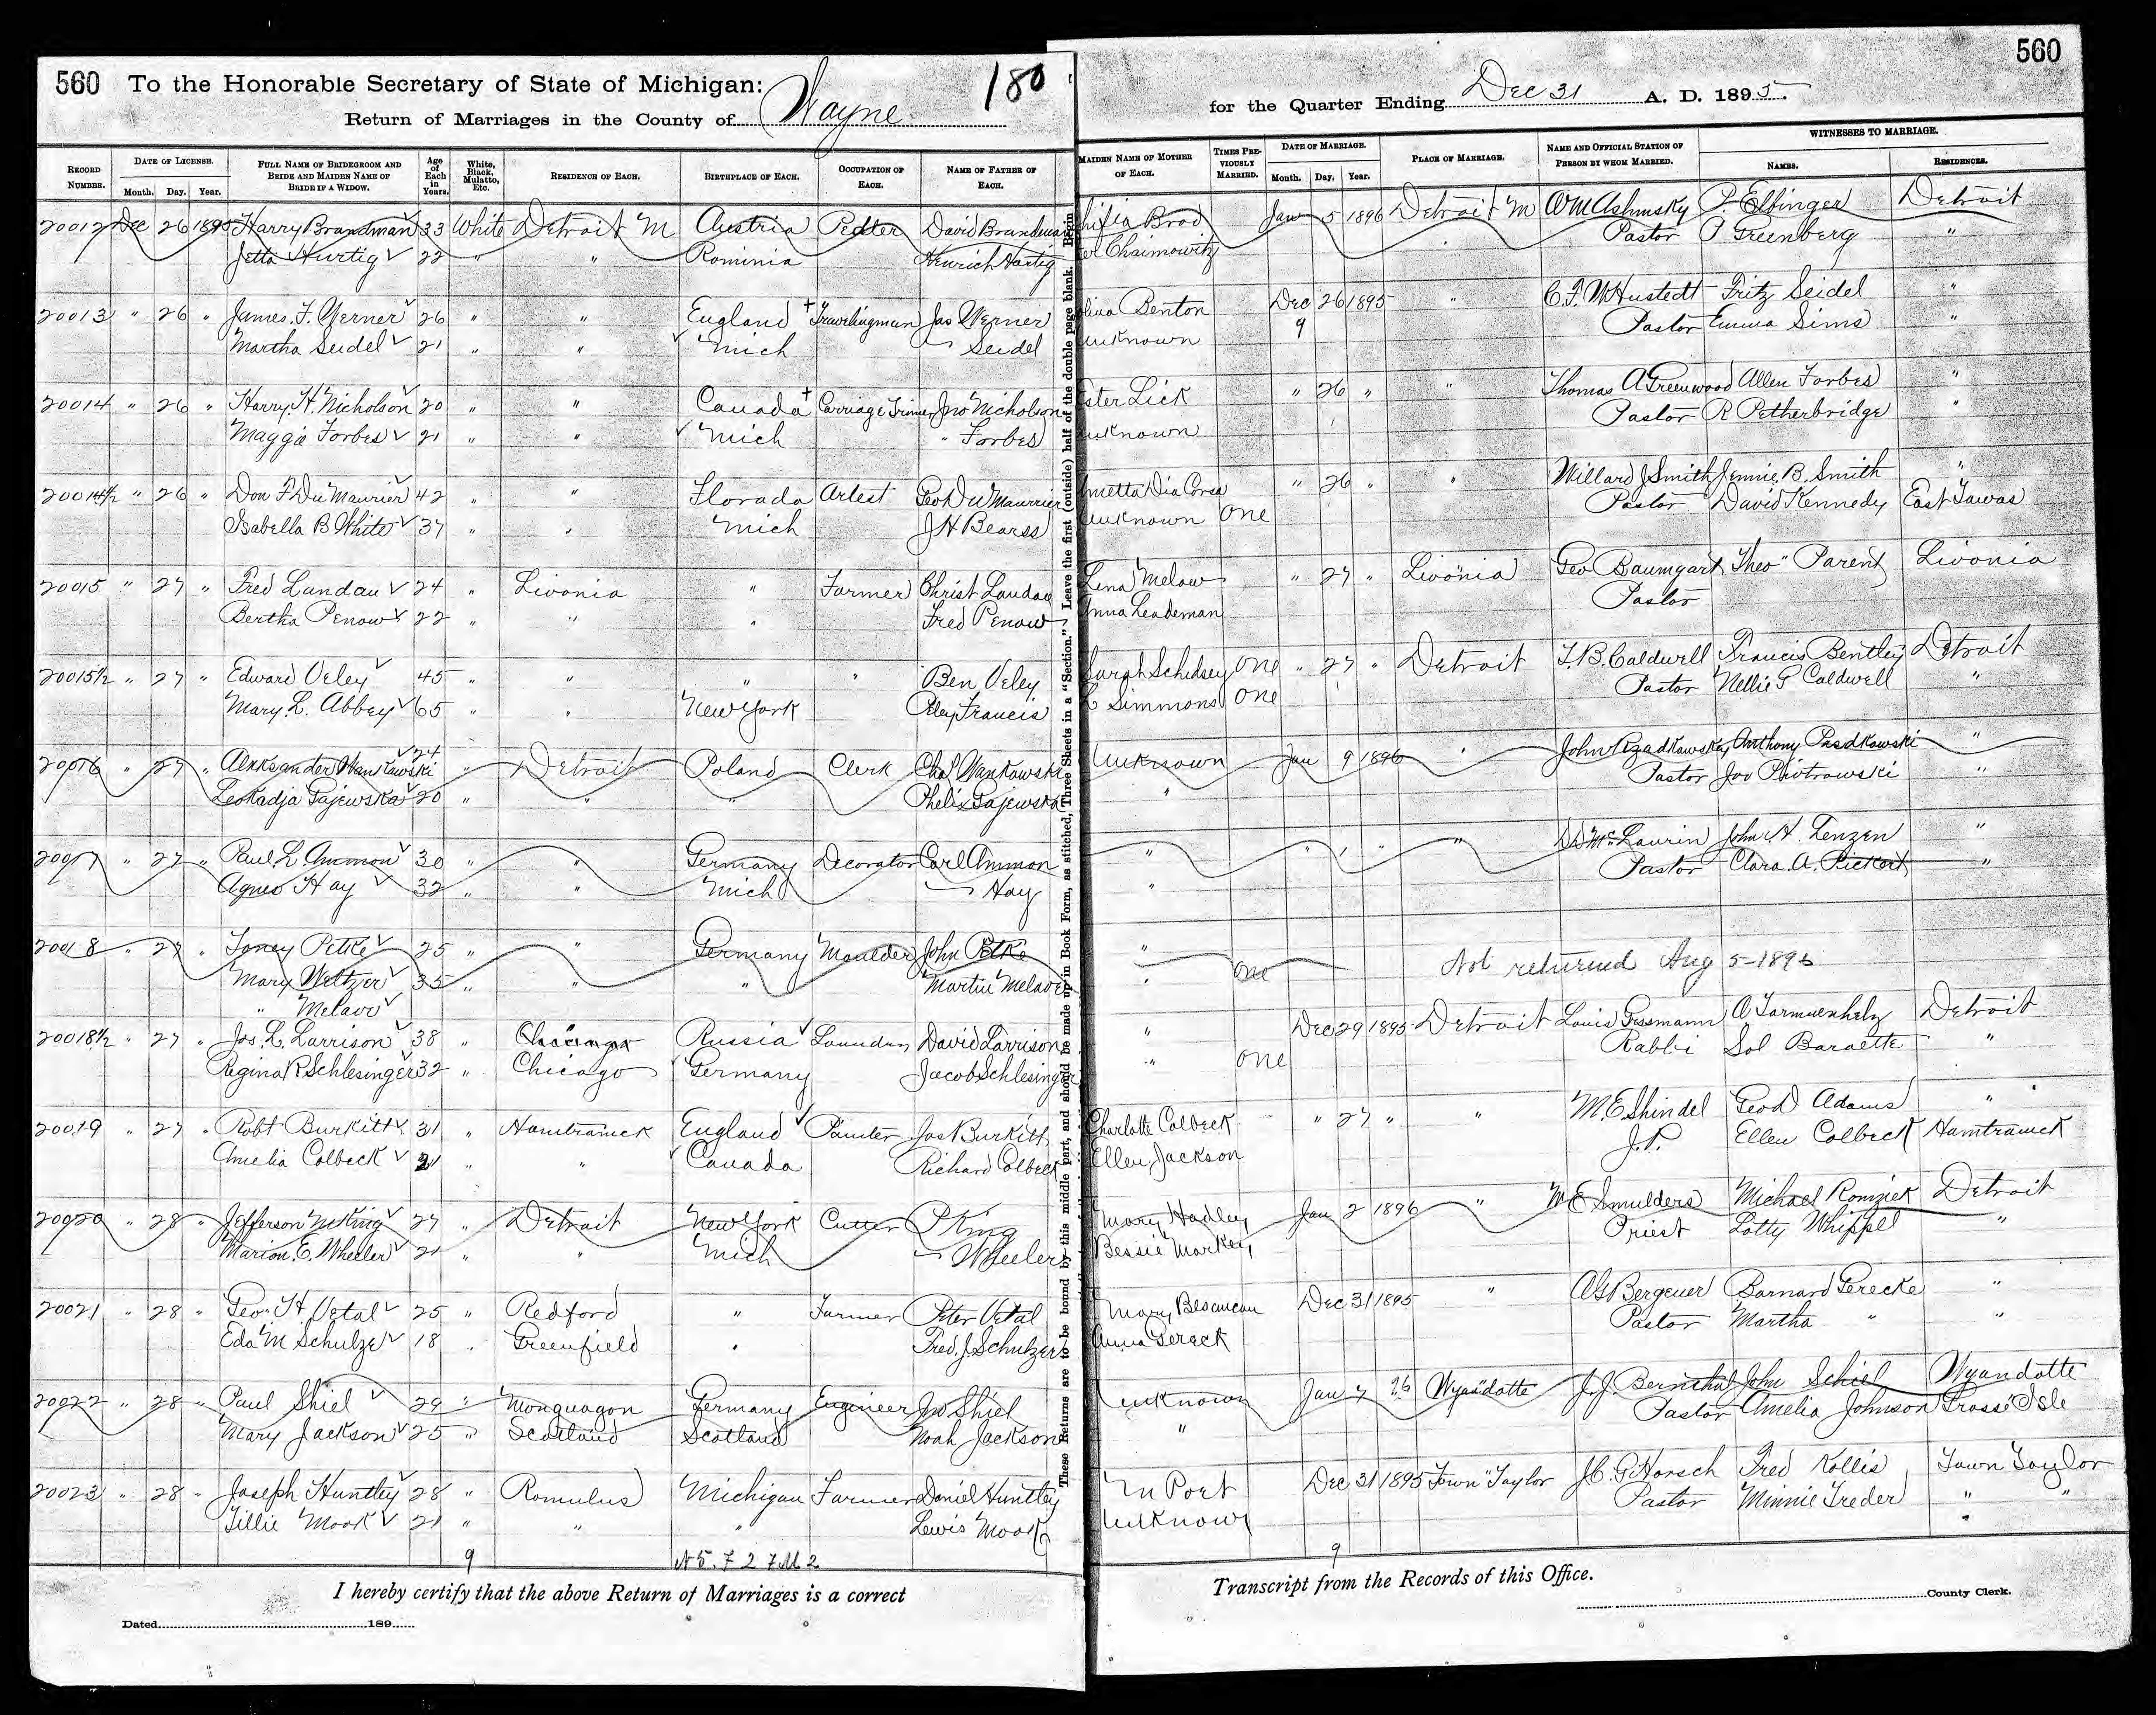 560 To the Honorable Secretary of State of Michigan: 180
Return of Marriages in the County of Wayne
for the Quarter Ending Dec 31 A. D. 1895. 560
RECORD NUMBER. DATE OF LICENSE. Month. Day. Year. FULL NAME OF BRIDEGROOM AND BRIDE AND MAIDEN NAME OF BRIDE IF A WIDOW. Age of Each in Years. White, Black, Mulatto, Etc. RESIDENCE OF EACH. BIRTHPLACE OF EACH. OCCUPATION OF EACH. NAME OF FATHER OF EACH. MAIDEN NAME OF MOTHER OF EACH. TIMES PREVIOUSLY MARRIED. DATE OF MARRIAGE. Month. Day. Year. PLACE OF MARRIAGE. NAME AND OFFICIAL STATION OF PERSON BY WHOM MARRIED. WITNESSES TO MARRIAGE. NAMES. RESIDENCES.
20012 Dec 26 1895 Harry Brandman 33 White Detroit M Austria Pedler David Brandman Brod Jan 5 1896 Detroit M Wm Ashinsky P. Elbinger Detroit
Jetta Hurtig 22 " " Rominia Heinrich Hartig Chaimowitz Pastor P Greenberg "
20013 " 26 " James. F. Yerner 26 " " England Travelingman Jas Yerner Benton Dec 26 1895 " C. F. W Hustedt Fritz Seidel "
Martha Seidel 21 " " Mich Seidel unknown 9 Pastor Emma Sims "
20014 " 26 " Harry. H. Nicholson 20 " " Canada Carriage Trimer Jno Nicholson Ester Lick " 26 " " Thomas A Greenwood Allen Forbes "
Maggie Forbes 21 " " Mich " Forbes unknown Pastor R Petherbridge "
20014½ " 26 " Don F Du Maurier 42 " " Florada Artest Geo Du Maurrier " 26 " Willard J Smith Jennie B. Smith "
Isabella B White 37 " " Mich J H Bearss unknown One Pastor David Kennedy East Tawas
20015 " 27 " Fred Landau 24 " Livonia " Farmer Christ Landau Lena Melow " 27 " Livonia Geo Baumgart Theo Parent Livonia
Bertha Penow 22 " " " Fred Penow Anna Leademan Pastor
20015½ " 27 " Edward Veley 45 " " " " Ben Veley Sarah Schedsey One " 27 " Detroit T. B. Caldwell Francis Bentley Detroit
Mary. L. Abbey 65 " " New York Francis L Simmons One Pastor Nellie P Caldwell "
20016 " 27 " Aleksander Wankowski 24 " Detroit Poland Clerk Chas Wankowski Unknown Jan 9 1896 " John Rzadkowsky Anthony Pasdkowski "
Leokadja Gajewska 20 " " " Phelix Gajewska " Pastor Jos Piotrowski "
20017 " 27 " Paul. L. Ammon 30 " " Germany Decorator Carl Ammon " " " " " D D McLaurin John. H. Lenzen "
Agnes Hay 32 " " Mich Hay " Pastor Clara. A. Pickert "
20018 " 27 Toney Petke 25 " " Germany Moulder John Petke "
Mary Weltzer 35 " " " Martin Melave " One Not returned Aug 5-1896
" Melave
20018½ " 27 " Jos. L. Larrison 38 " Russia Laundry David Larrison " Dec 29 1895 Detroit Louis Grossmann Detroit
Regina R Schlesinger 32 " Chicago Germany Jacob Schlesinger " One Rabbi Sol Baraette "
20019 " 27 " Robt Burkitt 31 " Hamtramck England Painter Jas Burkitt Charlotte Colbeck " 27 " " M. E Shindel Geo Adams "
Amelia Colbeck 21 " " Canada Richard Colbeck Ellen Jackson J. P. Ellen Colbeck Hamtramck
20020 " 28 " Jefferson McKing 27 " Detroit New York Cutter P King Mary Hadley Jan 2 1896 " M E Smulders Michael Romziek Detroit
Marion. E. Wheeler 21 " " Mich Wheeler Bessie Markey Priest Lotty Whippel "
20021 " 28 " Geo. H. Vetal 25 " Redford " Farmer Peter Vetal Mary Besancau Dec 31 1895 " A G Bergener Barnard Gerecke "
Eda M Schulze 18 " Greenfield " Fred. J. Schulzer Anna Gereck Pastor Martha " "
20022 " 28 " Paul Shiel 29 " Monguagon Germany Engineer Jno Shiel unknown Jan 7 96 Wyandotte J. J. Bernthal John Schiel Wyandotte
Mary Jackson 25 " Scotland Scotland Noah Jackson " Pastor Amelia Johnson Grosse Isle
20023 " 28 " Joseph Huntley 28 " Romulus Michigan Farmer Daniel Huntley M Port Dec 31 1895 Town Taylor J. C. G Horsch Fred Kollis Town Taylor
Tillie Mook 21 " " " Lewis Mook unknown Pastor Minnie Treder " "
9 N 5. F 2 7 M. 2 9
These Returns are to be bound by this middle part, and should be made up in Book Form, as stitched, Three Sheets in a "Section." Leave the first (outside) half of the double page blank. Begin
I hereby certify that the above Return of Marriages is a correct Transcript from the Records of this Office.
Dated 189 County Clerk.